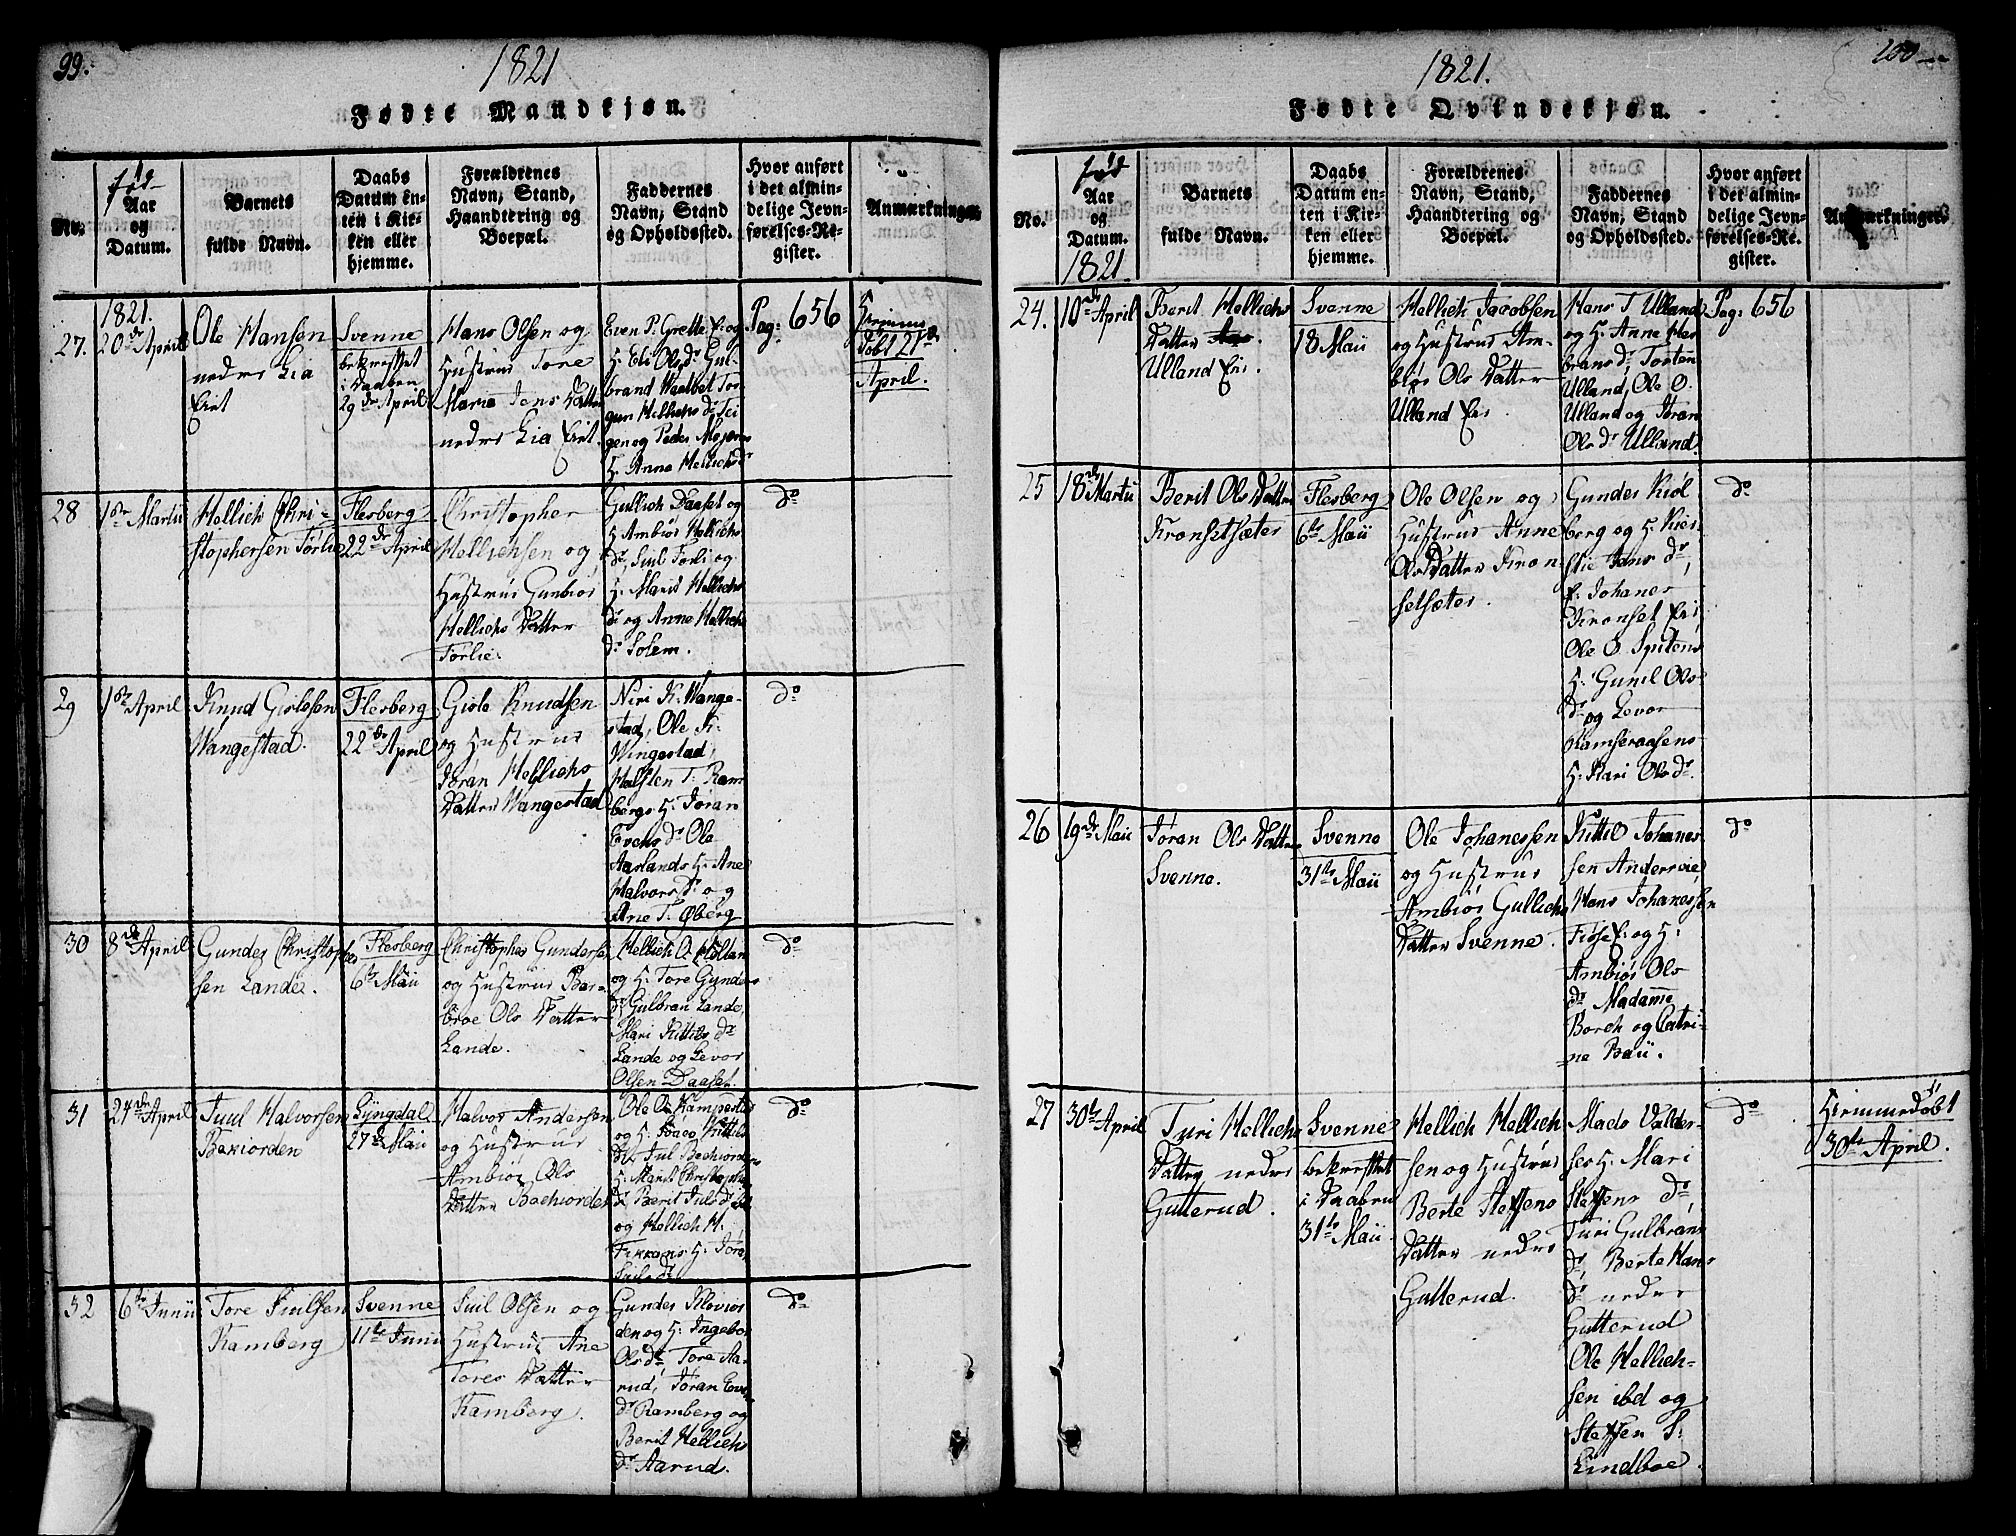 99.
1821
Fødte Mandkjøn.
No.
fød
Aar
og
Datum.
Barnets
fulde Navn.
Daabs
Datum en-
ten i Kir-
ken eller
hjemme.
Forældrenes
Navn, Stand,
Haandtering og
Boepæl.
Faddernes
Navn, Stand
og Opholdssted.
Hvor anført
i det almin-
delige Jevn-
førelses-Re-
gister.
Anmærkninger.
27.
1821.
20de April
Ole Hansen
nedre Lia
Eiet
Svenne
bekræftet
i Daaben
29de April
Hans Olsen og
Hustrue Tore
Maria Jens Datter
nedre Lia Eiet.
Even P. Grette E: og
H. Eli Ols dr Gul-
brand Waalbet Tor
gun Hellichs dr Tei
gen og Peder Mogens
H. Anne Hellichs dr
Pag: 656
Hjemme
døbt 21de
April.
28
1ste Martii
Hellich Chri-
stophersen Tørlie
Flesberg
22de April
Christopher
Hellichsen og
Hustrue Gunbiør
Hellichs Datter
Tørlie.
Gullich Daaset og
H. Ambiør Hellichs
dr, Juul Tørli og
H. Marit Hellichs
dr og Anne Hellichs
dr Solem.
do
29
1ste April
Knud Gislesen
Wangestad.
Flesberg
22de April
Gisle Knudsen
og Hustrue
Jøran Hellichs
Datter Wangestad
Niri K. Wange-
stad, Ole K.
Wingestad,
Halsten T. Ram
bergs H. Jøran
Evens dr Ole
Aaslands H. Ane
Halvors dr og
Ane T. Øberg
do
30
8de April
Gunder Christopher
sen Lande.
Flesberg
6te Maii
Christopher Gundersen
og Hustrue Bar-
broe Ols Datter
Lande.
Hellich O. Holtan
og H. Tore Gunders
dr Gulbran Lande,
Mari Kittils dr
Lande og Levor
Olsen Daaset.
do
31
24de April
Juul Halvorsen
Bekiorden
Lÿngdal
27de Maii
Halvor Andersen
og Hustrue
Ambiør Ols
Datter Baekiorden
Ole O. Kampestad
og H. Kittils
dr Jul Bækiorden
H. Marit Christophers
dr Berit Juls dr
og Hellich H.
H. Jøran
Juls dr
do
32
6te Junii
Tore Juulsen
Ramberg
Svenne
11te Junii
Juul Olsen og
Hustrue Ane
Tores Datter
Ramberg.
Gunder Klovior
den og H. Ingebor
Ols dr Tore Aa-
rud, Jøran Evens
dr Ramberg og
Berit Hellichs
dr Aarud.
do
100
1821.
Fødte Qvindekjøn.
No.
fød
Aar
og
Datum.
1821.
Barnets
fulde Navn.
Daabs
Datum en-
ten i Kir-
ken eller
hjemme.
Forældrenes
Navn, Stand,
Haandtering og
Boepæl.
Faddernes
Navn, Stand
og Opholdssted.
Hvor anført
i det almin-
delige Jevn-
førelses-Re-
gister.
Anmærkninger.
24.
10de April
Berit Hellichs
Datter
Ulland Eie.
Svenne
18 Maii
Hellich Jacobsen
og Hustrue Am-
biør Ols Datter
Ulland Eie
Hans T Ulland
og H. Anne Her
brans dr, Torsten
Ulland, Ole O.
Ulland og Jøran
Ols dr Ulland.
Pag: 656
25
18de Martii
Berit Ols Datter
Kronsetsæter
Flesberg
6te Maii
Ole Olsen og
Hustrue Anne
Ols Datter Kron
setsæter.
Gunder Kiøl
berg og H. Kier-
stie Jens dr,
E. Johaner
Kronset Eie,
Ole O. Spitens
H. Gunil Ols
dr og Levor
Ramseraasens
H. Kari Ols dr.
do
26
19de Maii
Jøran Ols Datter
Svenne.
Svenne
31te Maii
Ole Johanessen
og Hustrue
Ambiør Gullichs
Datter Svenne.
Kittil Johanes-
sen Andersvie,
Hans Johanessen
Fiøse E: og H:
Ambiør Ols
dr Madame
Borch og Catri-
ne Bau.
do
27
30te April
Turi Hellichs
Datter nedre
Gutterud.
Svenne
bekræftet
i Daaben
31te Maii
Hellich Hellich
sen og Hustrue
Berte Steffens
Datter nedre
Gutterud.
Mads Valder-
ses H. Mari
Steffens dr
Turi Gulbrans
dr, Berte Hans
dr nedre
Gutterud
Ole Hellich-
sen ibd og
Steffen S.
Lindboe.
do
Hjemmedøbt
30te April.